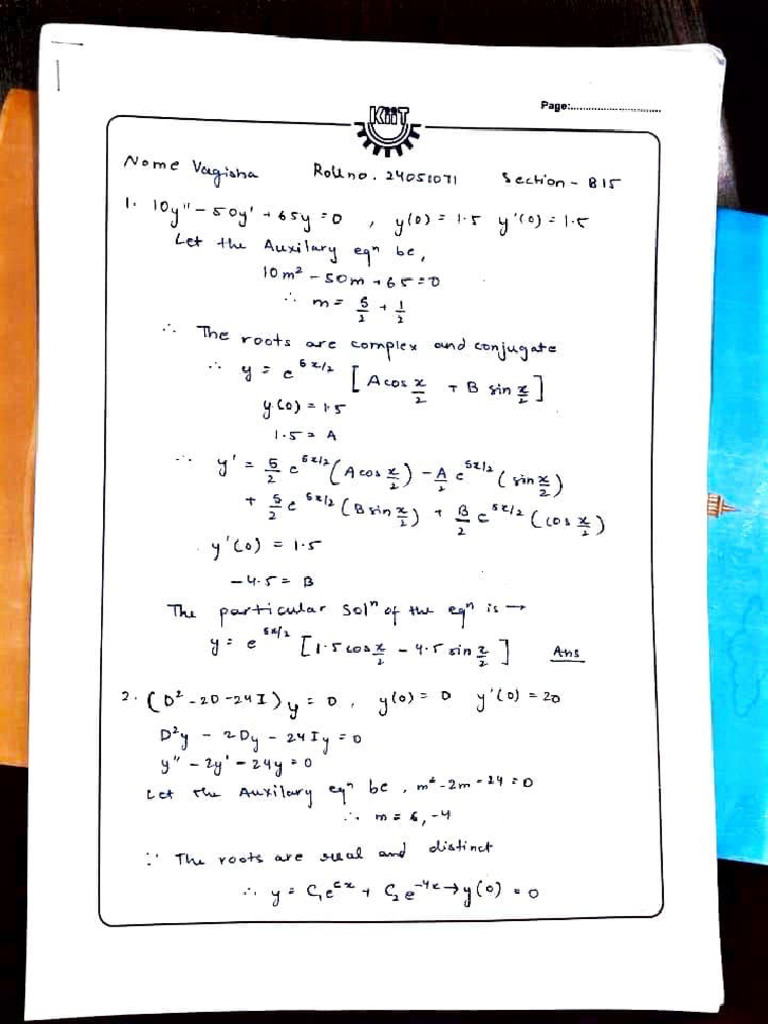 Page:..............................
KIIT
Name Vagisha Roll no. 24051071 Section - B15
1. 10y" - 50y' + 65y = 0 , y(0) = 1.5 y'(0) = 1.5
Let the Auxilary eqⁿ be,
10m² - 50m + 65 = 0
∴ m = 5/2 + 1/2
∴ The roots are complex and conjugate
∴ y = e^(5x/2) [A cos x/2 + B sin x/2]
y(0) = 1.5
1.5 = A
∴ y' = 5/2 e^(5x/2) (A cos x/2) - A/2 e^(5x/2) (sin x/2)
+ 5/2 e^(5x/2) (B sin x/2) + B/2 e^(5x/2) (cos x/2)
y'(0) = 1.5
-4.5 = B
The particular solⁿ of the eqⁿ is →
y = e^(5x/2) [1.5 cos x/2 - 4.5 sin x/2] Ans
2. (D² - 2D - 24I)y = 0, y(0) = 0 y'(0) = 20
D²y - 2Dy - 24Iy = 0
y" - 2y' - 24y = 0
Let the Auxilary eqⁿ be , m² - 2m - 24 = 0
∴ m = 6, -4
∵ The roots are real and distinct
∴ y = C₁e^(6x) + C₂e^(-4x) → y(0) = 0